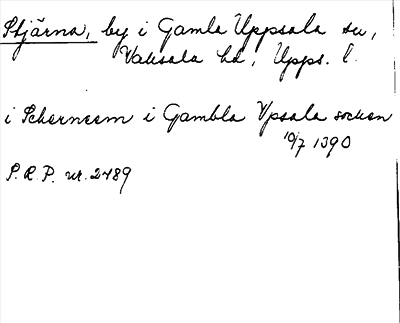 Stjärna, by i Gamla Uppsala sn,
Vaksala hd, Upps. l.
i Scherneem i Gambla Vpsala socken
10/7 1390
S.R.P. nr. 2489